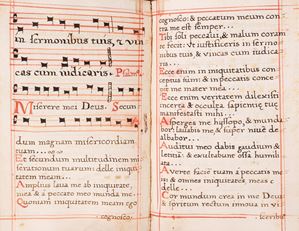 in sermonibus tuis, & vin
cas cum iudicaris. Psalm
Miserere mei Deus. Secun
dum magnam misericordiam
tuam.
Et secundum multitudinem mi
serationum tuarum: dele iniqui
tatem meam.
Amplius laua me ab iniquitate
mea: & a peccato meo munda me
Quoniam iniquitatem meam ego
cognosco:
cognosco: & peccatum meum con
tra me est semper.
Tibi soli peccaui, & malum coram
te feci: Vt iustificeris in sermo
nibus tuis, & vincas cum iudicaris.
Ecce enim in iniquitatibus con
ceptus sum: & in peccatis conce
pit me mater mea.
Ecce enim veritatem dilexisti
incerta & occulta sapientię tuę
manifestasti mihi.
Asperges me hyssopo, & munda
bor: lauabis me, & super niuē de
albabor.
Auditui meo dabis gaudium, &
lętitiā: & exultabunt ossa humili
ata.
Auerte faciē tuam a peccatis me
is: & omnes iniquitates meas
dele.
Cor mundum crea in me Deus:
& spiritum rectum innoua in vi
sceribus